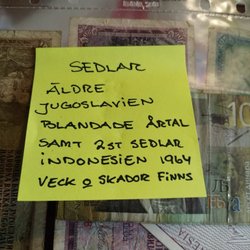 SEDLAR
ÄLDRE
JUGOSLAVIEN
BLANDADE ÅRTAL
SAMT 2 ST SEDLAR
INDONESIEN 1964
VECK o SKADOR FINNS